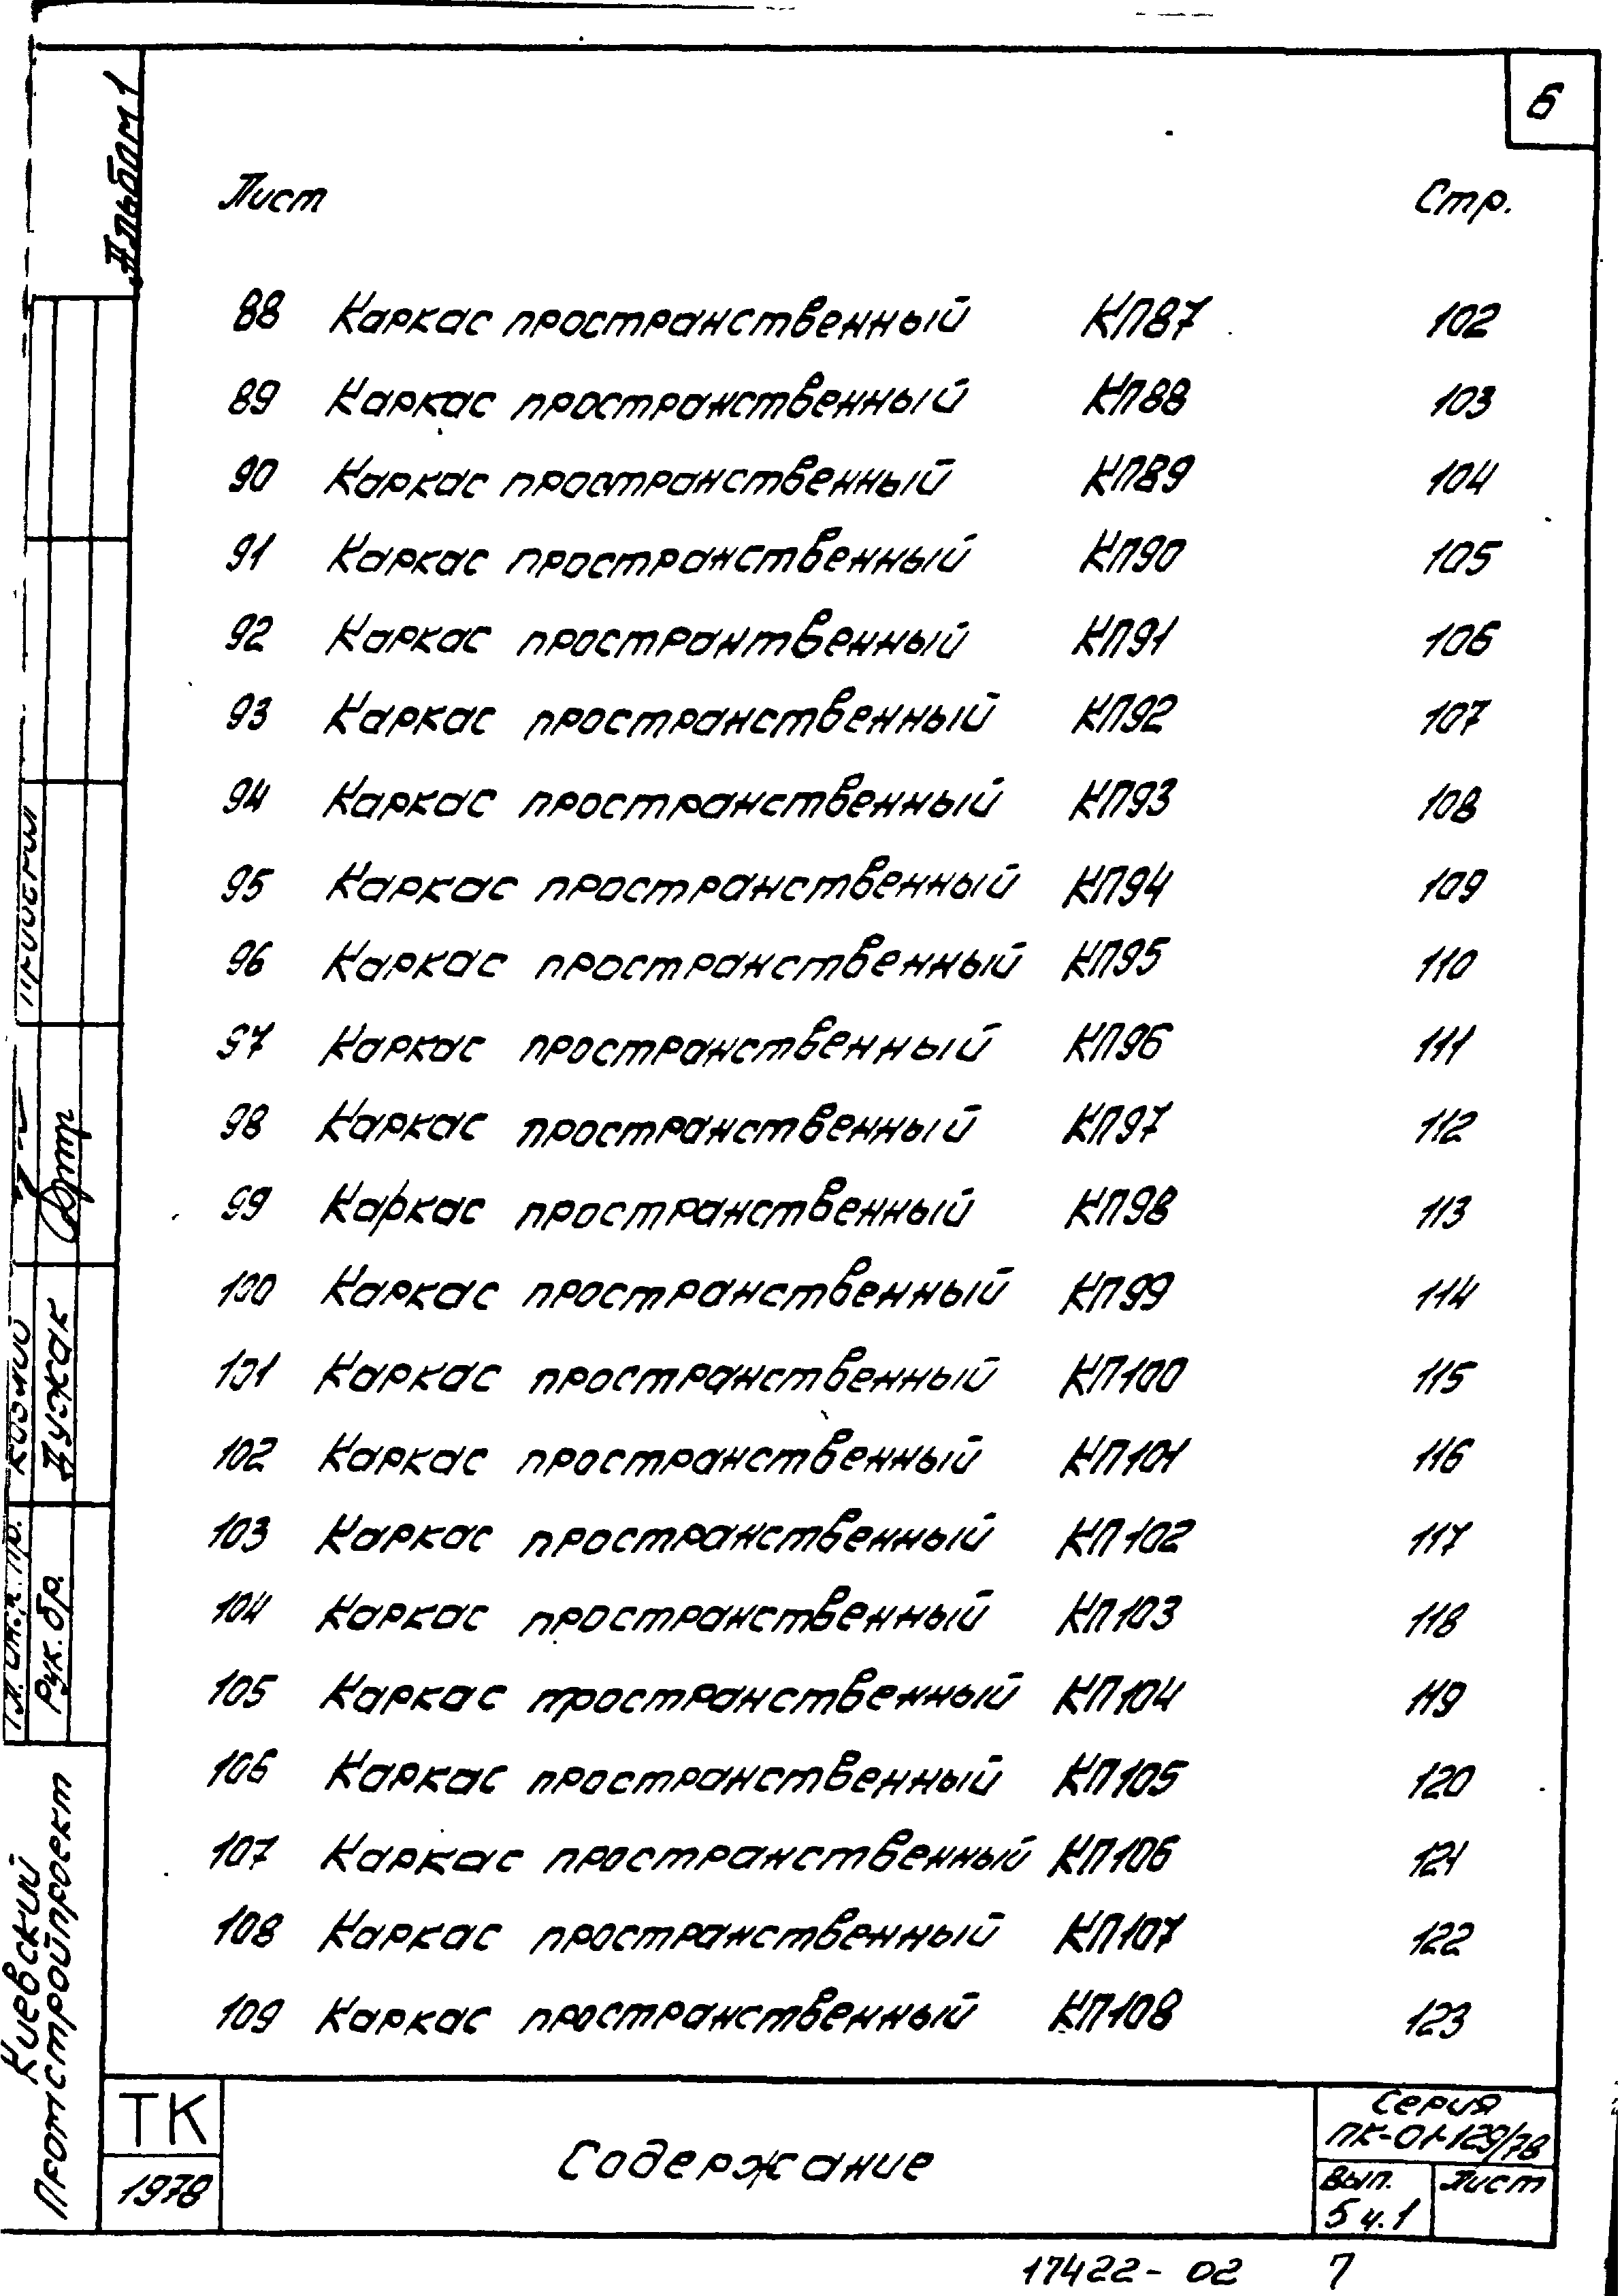 6
Альбом 1
Лист Стр.
88 Каркас пространственный КП87 102
89 Каркас пространственный КП88 103
90 Каркас пространственный КП89 104
91 Каркас пространственный КП90 105
92 Каркас пространтвенный КП91 106
93 Каркас пространственный КП92 107
94 Каркас пространственный КП93 108
95 Каркас пространственный КП94 109
96 Каркас пространственный КП95 110
97 Каркас пространственный КП96 111
98 Каркас пространственный КП97 112
99 Каркас пространственный КП98 113
100 Каркас пространственный КП99 114
101 Каркас пространственный КП100 115
102 Каркас пространственный КП101 116
103 Каркас пространственный КП102 117
104 Каркас пространственный КП103 118
105 Каркас пространственный КП104 119
106 Каркас пространственный КП105 120
107 Каркас пространственный КП106 121
108 Каркас пространственный КП107 122
109 Каркас пространственный КП108 123
Рук. бр. Дужак
Киевский
Промстройпроект
ТК
1978
Содержание
Серия
ПК-01-129/78
Вып. Лист
5 ч.1
17422-02 7